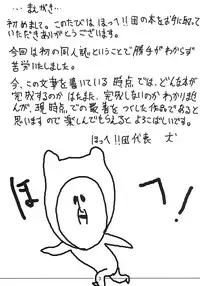 … まえがき …
初めまして。このたびは ほっへ!!団の本をお手に取って
いただきありがとうございます。
今回は初の同人誌ということで勝手がわからず
苦労いたしました。
今、この文章を書いている時点では、どんな本が
完成するのか はたまた、完成しないのか わかりませ
んが、現時点での最善をつくした作品であると
思いますので 楽しんでもらえると よろこばしいです。
ほっへ!!団代表 犬
ほっへ!